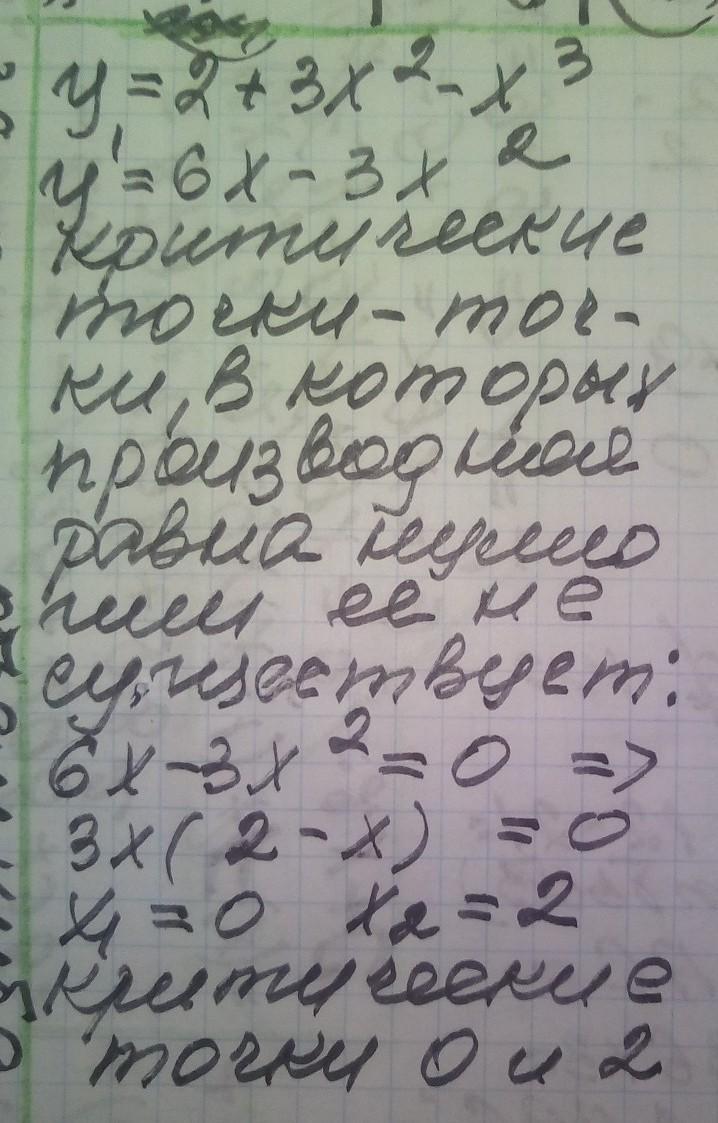 y = 2 + 3x² - x³
y' = 6x - 3x²
критические
точки - точ-
ки, в которых
производная
равна нулю
или ее не
существует:
6x - 3x² = 0 =>
3x(2 - x) = 0
x₁ = 0 x₂ = 2
критические
точки 0 и 2